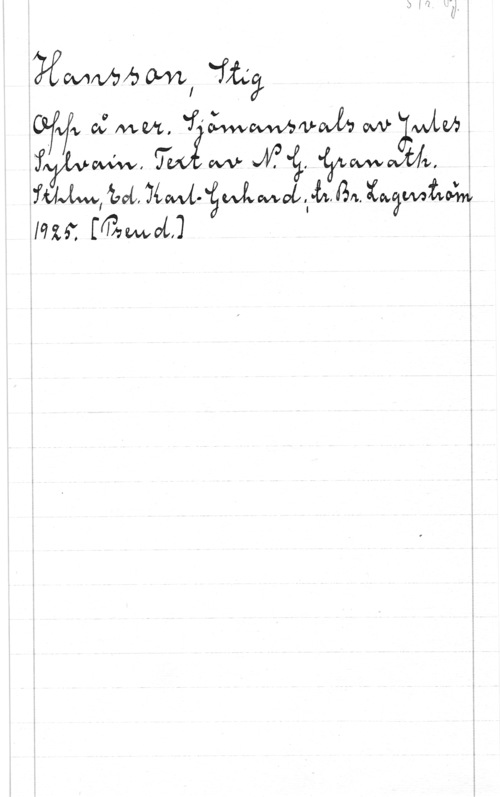 Hansson, Stig
Opp å ner. Sjömansvals av Jules
Sylvain. Text av N. G. Granath.
Sthlm, Ed. Karl-Gerhard; tr. Br. Lagerström
1925. [Pseud.]